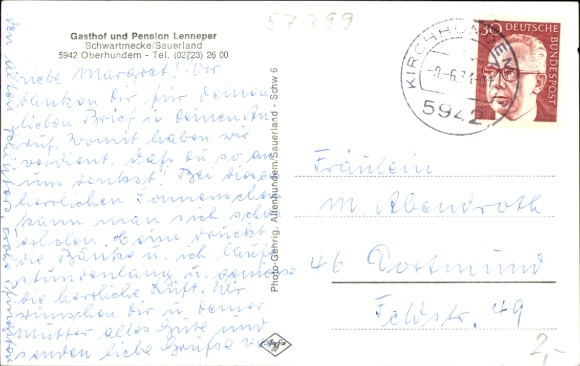 57399
Gasthof und Pension Lenneper
Schwartmecke/Sauerland
5942 Oberhundem - Tel. (02723) 26 00
Liebe Margret! Wir
danken Dir für Deinen
lieben Brief u. Deinen
ruf. Womit haben wir
verdient, daß du so an
uns denkst! Bei diesem
herrlichen Sonnenschein
kann man sich schön
erholen. drückt
die Bänke u. ich laufe
stundenlang u. genieße
die herrliche Luft. Wir
wünschen dir u. Deiner
Mutter alles Gute und
senden liebe Grüße
von allen frohe Pfingsten
Photo-Gehrig, Altenhundem/Sauerland - Schw 6
Agfa
KIRCHHUNDEM
5942
30
DEUTSCHE BUNDESPOST
Fräulein
M. Abendroth
46 Dortmund
Feldstr. 49
2,-